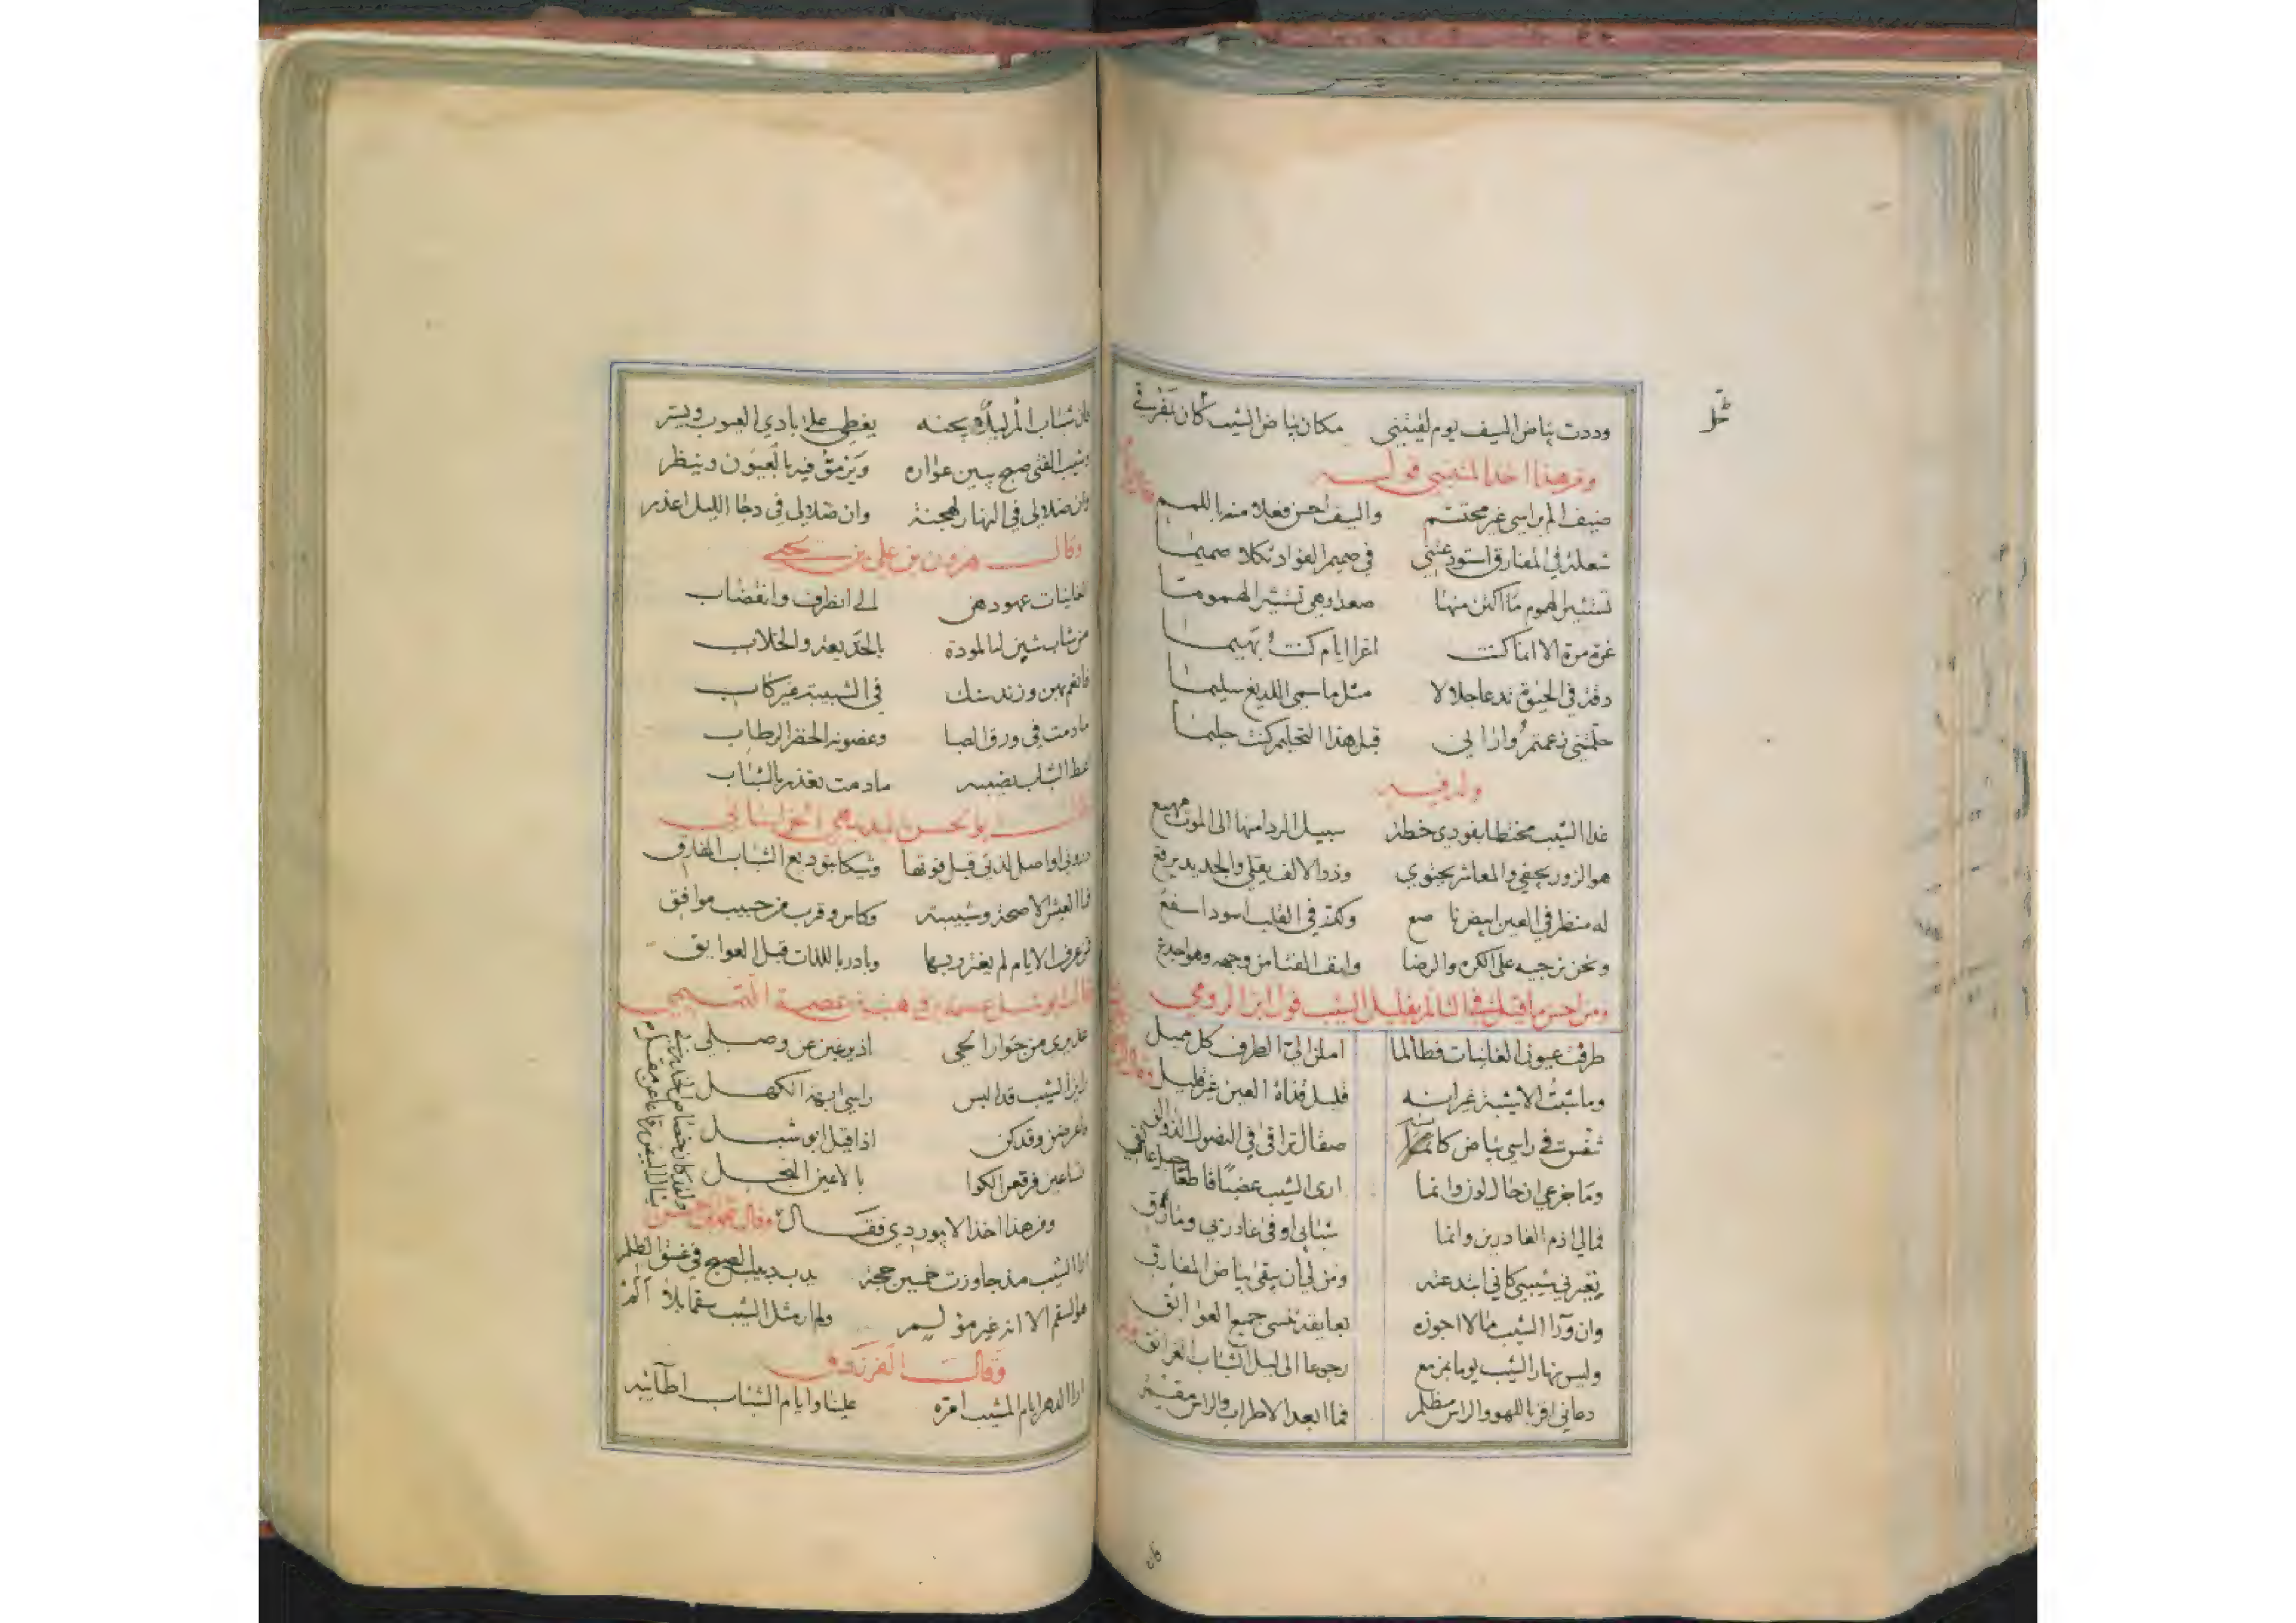 وددت بياض السيف يوم لقيننى مكان بياض الشيب كان بمفرقي
ومن هذا اخذ المتنبي قوله
ضيف الم براسى غير محتشم والسيف احسن فعلا منه باللمم
شعلة في المفارق استودعتنى في صميم الفواد ثكلا صميما
تستثير الهموم ما اكتن منها صعدا وهي تستثير الهموما
غرة مرة الا انما كنت اغرا ايام كنت بهيما
دقة في الحيوة تدعا جلالا مثل ما سمى اللديغ سليما
حلمتني زعمتم وارانى قبل هذا التحليم كنت حليما
وله فيه
غدا الشيب مختطا بفودى خطة سبيل الردا منها الى الموت مهيع
هو الزور يجفى والمعاشر يجتوي وذوا الالف يقلى والجديد يرقع
له منظر في العين ابيض ناصع ولكنه في القلب اسود اسفع
ونحن نرجيه على الكره والرضا وانف الفتا من وجهه وهو اجدع
ومن احسن ما قيل في التالم بقليل الشيب قول ابن الرومي
طرفت عيون الغانيات فطالما املن الي الطرف كل مميل
وما شبت الا شيبة غير انه قليل قذاة العين غير قليل
في راسى بياض كانما صقال تراقى في النصول
وما جزعي ان حال لون وانما ارى الشيب عضبا قاطعا
فمالي اذم الغادرين وانما شبابي اوفى غادر بي
يعيرني شيبي كاني ابتدعته ومن لي ان يبقى بياض المفارق
وان ورا الشيب ما لا اجوزه بعايقة تنسى جميع العوايق
وليس نهار الشيب يوما بمزمع رجوعا الى ليل الشباب الغرانق
والراس مظلم فما ابعد الاطراب والراس مقمر
فان شباب المرء ليل يجنه يغطى على بادي العيوب ويستر
وشيب الفتى صبح يبين عواره ويرمق فيه بالعيون وينظر
وان ضلالى في النهار لهجنة وان ضلالى في دجا الليل اعذر
وقال هرون بن علي بن يحيى
الغانيات عهودهن الى انطراف وانقضاب
من شاب شبن له المودة بالخديعة والخلاب
فانعم بهن وزند سنك في الشبيبة غير كاب
ما دمت في ورق الصبا وغصونه الخضر الرطاب
ما دمت تعذر بالشباب
اواصل لذتى قبل فوتها وشيكا بتوديع الشباب المفارق
فما العيش الا صحة وشبيبة وكاس وقرب من حبيب موافق
ومن عرف الايام لم يغترر بها وبادر باللذات قبل العوايق
عذيرى من جوار الحي اذ يرغبن عن وصلي
راين الشيب قد البس راسى ابهة الكهل
فاعرضن وقد كن اذا قيل ابو شبل
تساعين فرقعن الكوا بالاعين النجل
ومن هذا اخذ الابيوردي فقال
ارا الشيب مذ جاوزت خمسين حجة يدب دبيب الصبح في غسق الظلم
هو السقم الا انه غير مؤلم ولم ار مثل الشيب سقما بلا الم
وقال الفرزدق
ارا الدهر ايام المشيب امره علينا وايام الشباب اطايبه